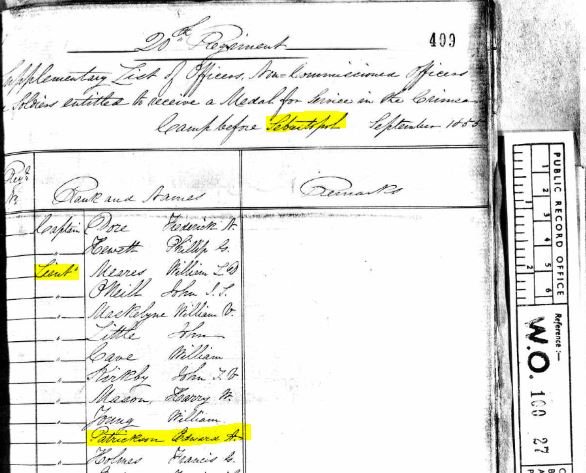 20th Regiment
499
Supplementary List of Officers, Non-Commissioned Officers
Soldiers entitled to receive a Medal for Service in the Crimea
Camp before Sebastopol September 1855
Regt. No. Rank and Names Remarks
Captain Dore Frederick A.
" Hewett Phillip G.
Lieut. Meares William L. D
" O'Neill John J. S.
" Maskelyne William V.
" Little John
" Cave William
" Kirkby John J. V
" Mason, Harry W.
" Young William
" Patrickson Edward A.
" Holmes Francis G.
PUBLIC RECORD OFFICE
1 2 3 4 5 6
1 2
Reference :-
W.O. 100 27